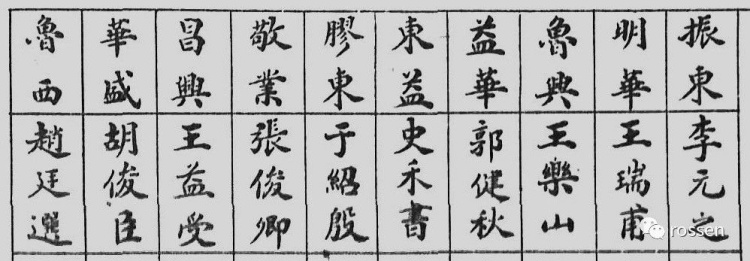 振東 李元之
明華 王瑞甫
魯興 王樂山
益華 郭健秋
東益 史禾書
膠東 于紹殷
敬業 張俊卿
昌興 王益受
華盛 胡俊臣
魯西 趙廷選
rossen